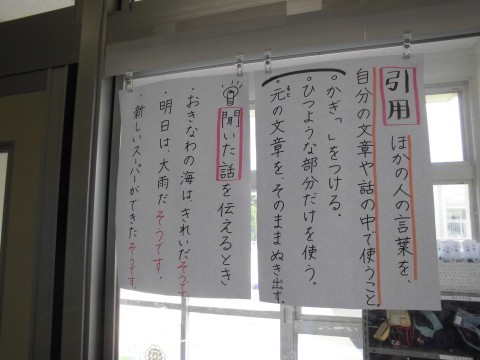 引用 ほかの人の言葉を、
自分の文章や話の中で使うこと
・かぎ「」をつける。
・ひつような部分だけを使う。
・元の文章を、そのままぬき出す。
もと
聞いた話を伝えるとき
・おきなわの海は、きれいだそうです
・明日は、大雨だそうです。
・新しいスーパーができたそうです。